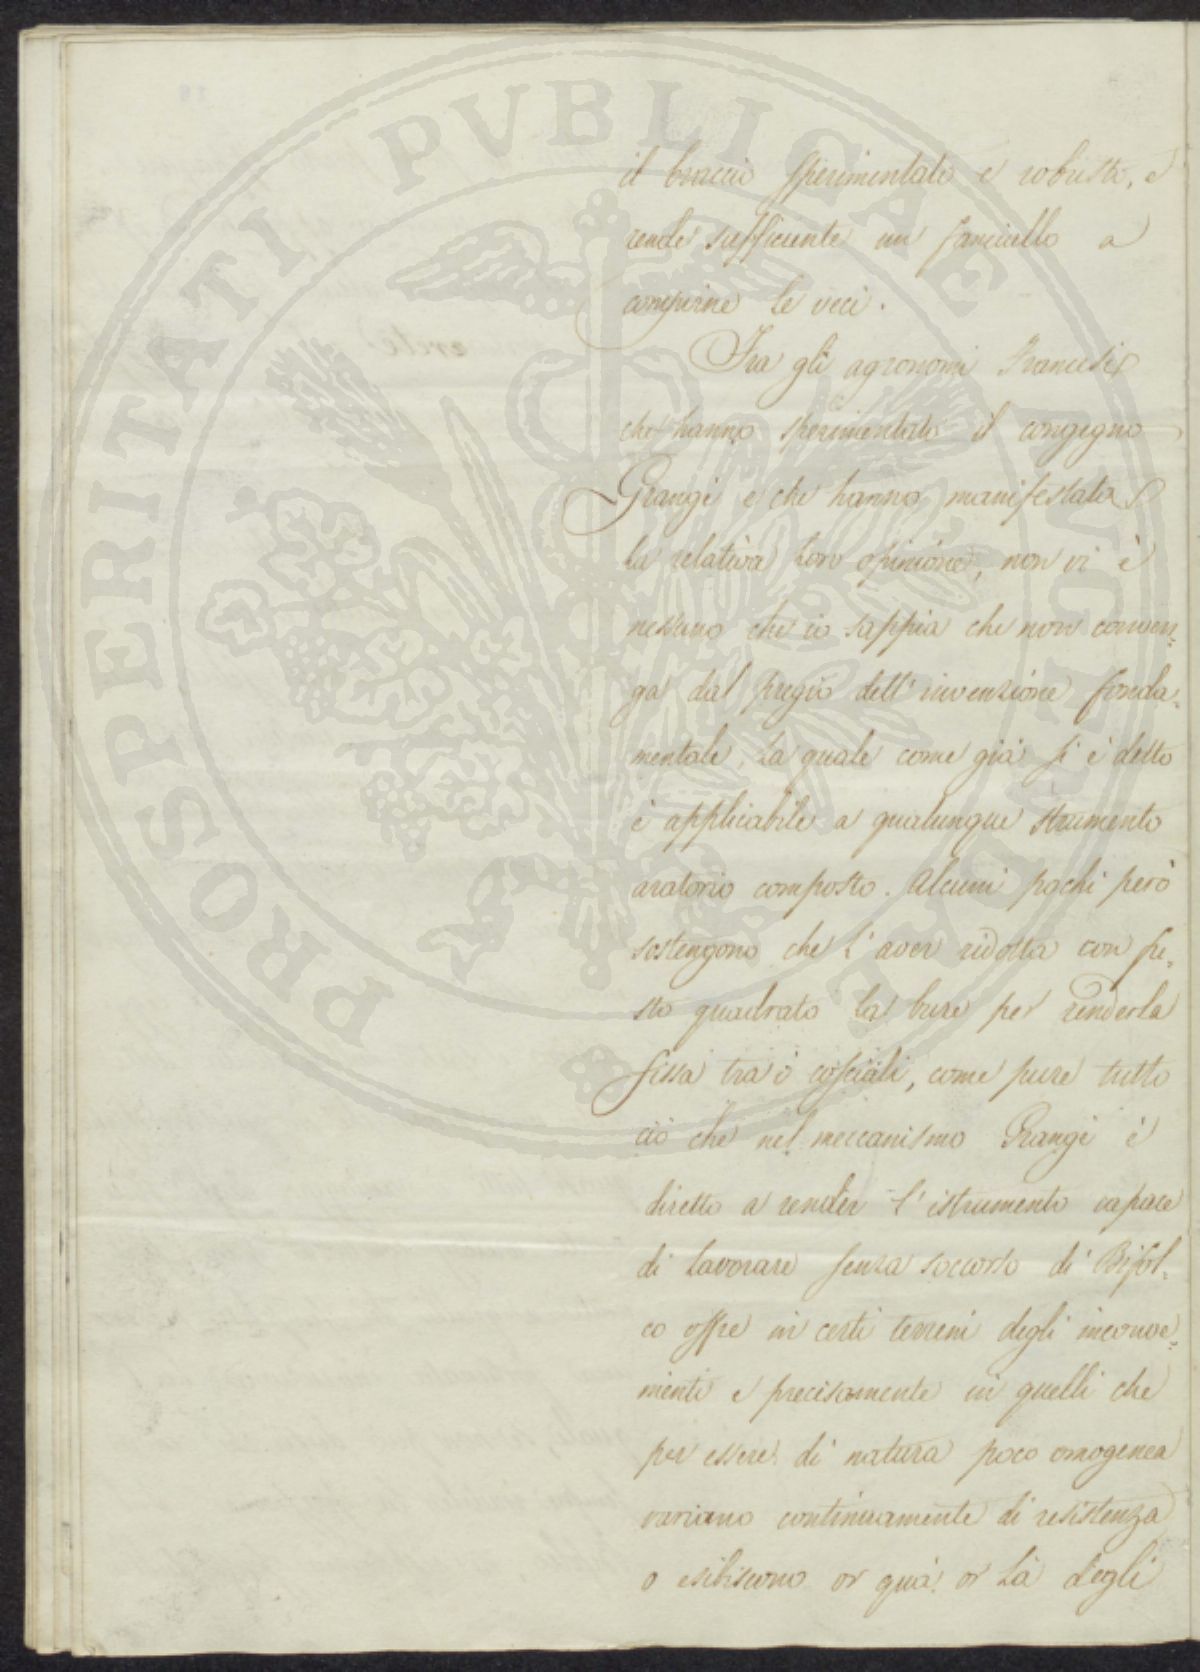 il braccio sperimentato e robusto, e
rende sufficiente un fanciullo a
compirne le veci.
Fra gli agronomi Francesi
che hanno sperimentato il congegno
Grangé e che hanno manifestata
la relativa loro opinione, non vi è
nessuno che io sappia che non conven-
ga dal pregio dell'invenzione fonda-
mentale, la quale come già si è detto
è applicabile a qualunque strumento
aratorio composto. Alcuni pochi però
sostengono che l'aver ridotta con se-
sto quadrato la bure per renderla
fissa tra i cosciali, come pure tutto
ciò che nel meccanismo Grangé è
diretto a render l'istrumento capace
di lavorare senza soccorso di Bifol-
co offre in certi terreni degli inconve-
nienti e precisamente in quelli che
per essere di natura poco omogenea
variano continuamente di resistenza
o esibiscono or quà or là degli
PROSPERITATI PVBLICAE AVGENDAE